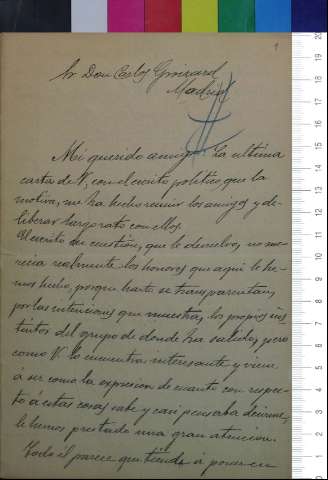 1
Sr Don Carlos Groizard
Madrid
Mi querido amigo: La ultima
carta de V, con el escrito politico que la
motiva, me ha hecho reunir los amigos y de-
liberar largo rato con ellos.
El escrito en cuestion, que le devuelvo, no me-
recia realmente los honores que aqui le he-
mos hecho, porque harto se transparentan,
por las intenciones que muestra, los propios ins-
tintos del grupo de donde ha salido, pero
como V. lo encuentra interesante y viene
á ser como la expresion de cuanto con respec-
to á estas cosas sabe y casi pensaba decirme,
le hemos prestado una gran atencion.
Todo él parece que tiende á poner en